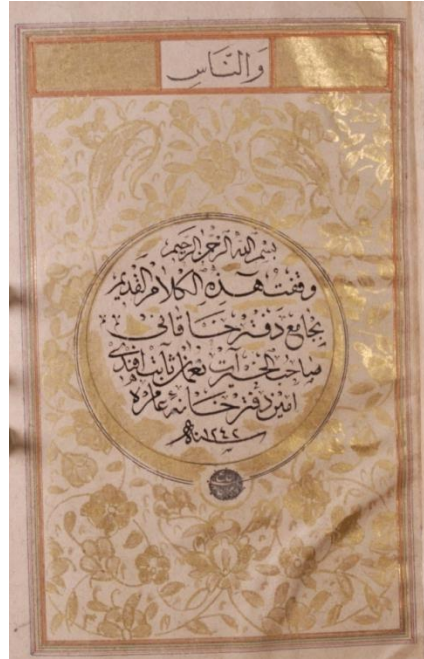 وَالنَّاسِ
بسم الله الرحمن الرحيم
وقفت هذه الكلام القديم
بجامع دفتر خاقانى
صاحب الخيرات نعمان ثابت افندى
امين دفترخانهٔ عامره
سنه ١٢٤٢